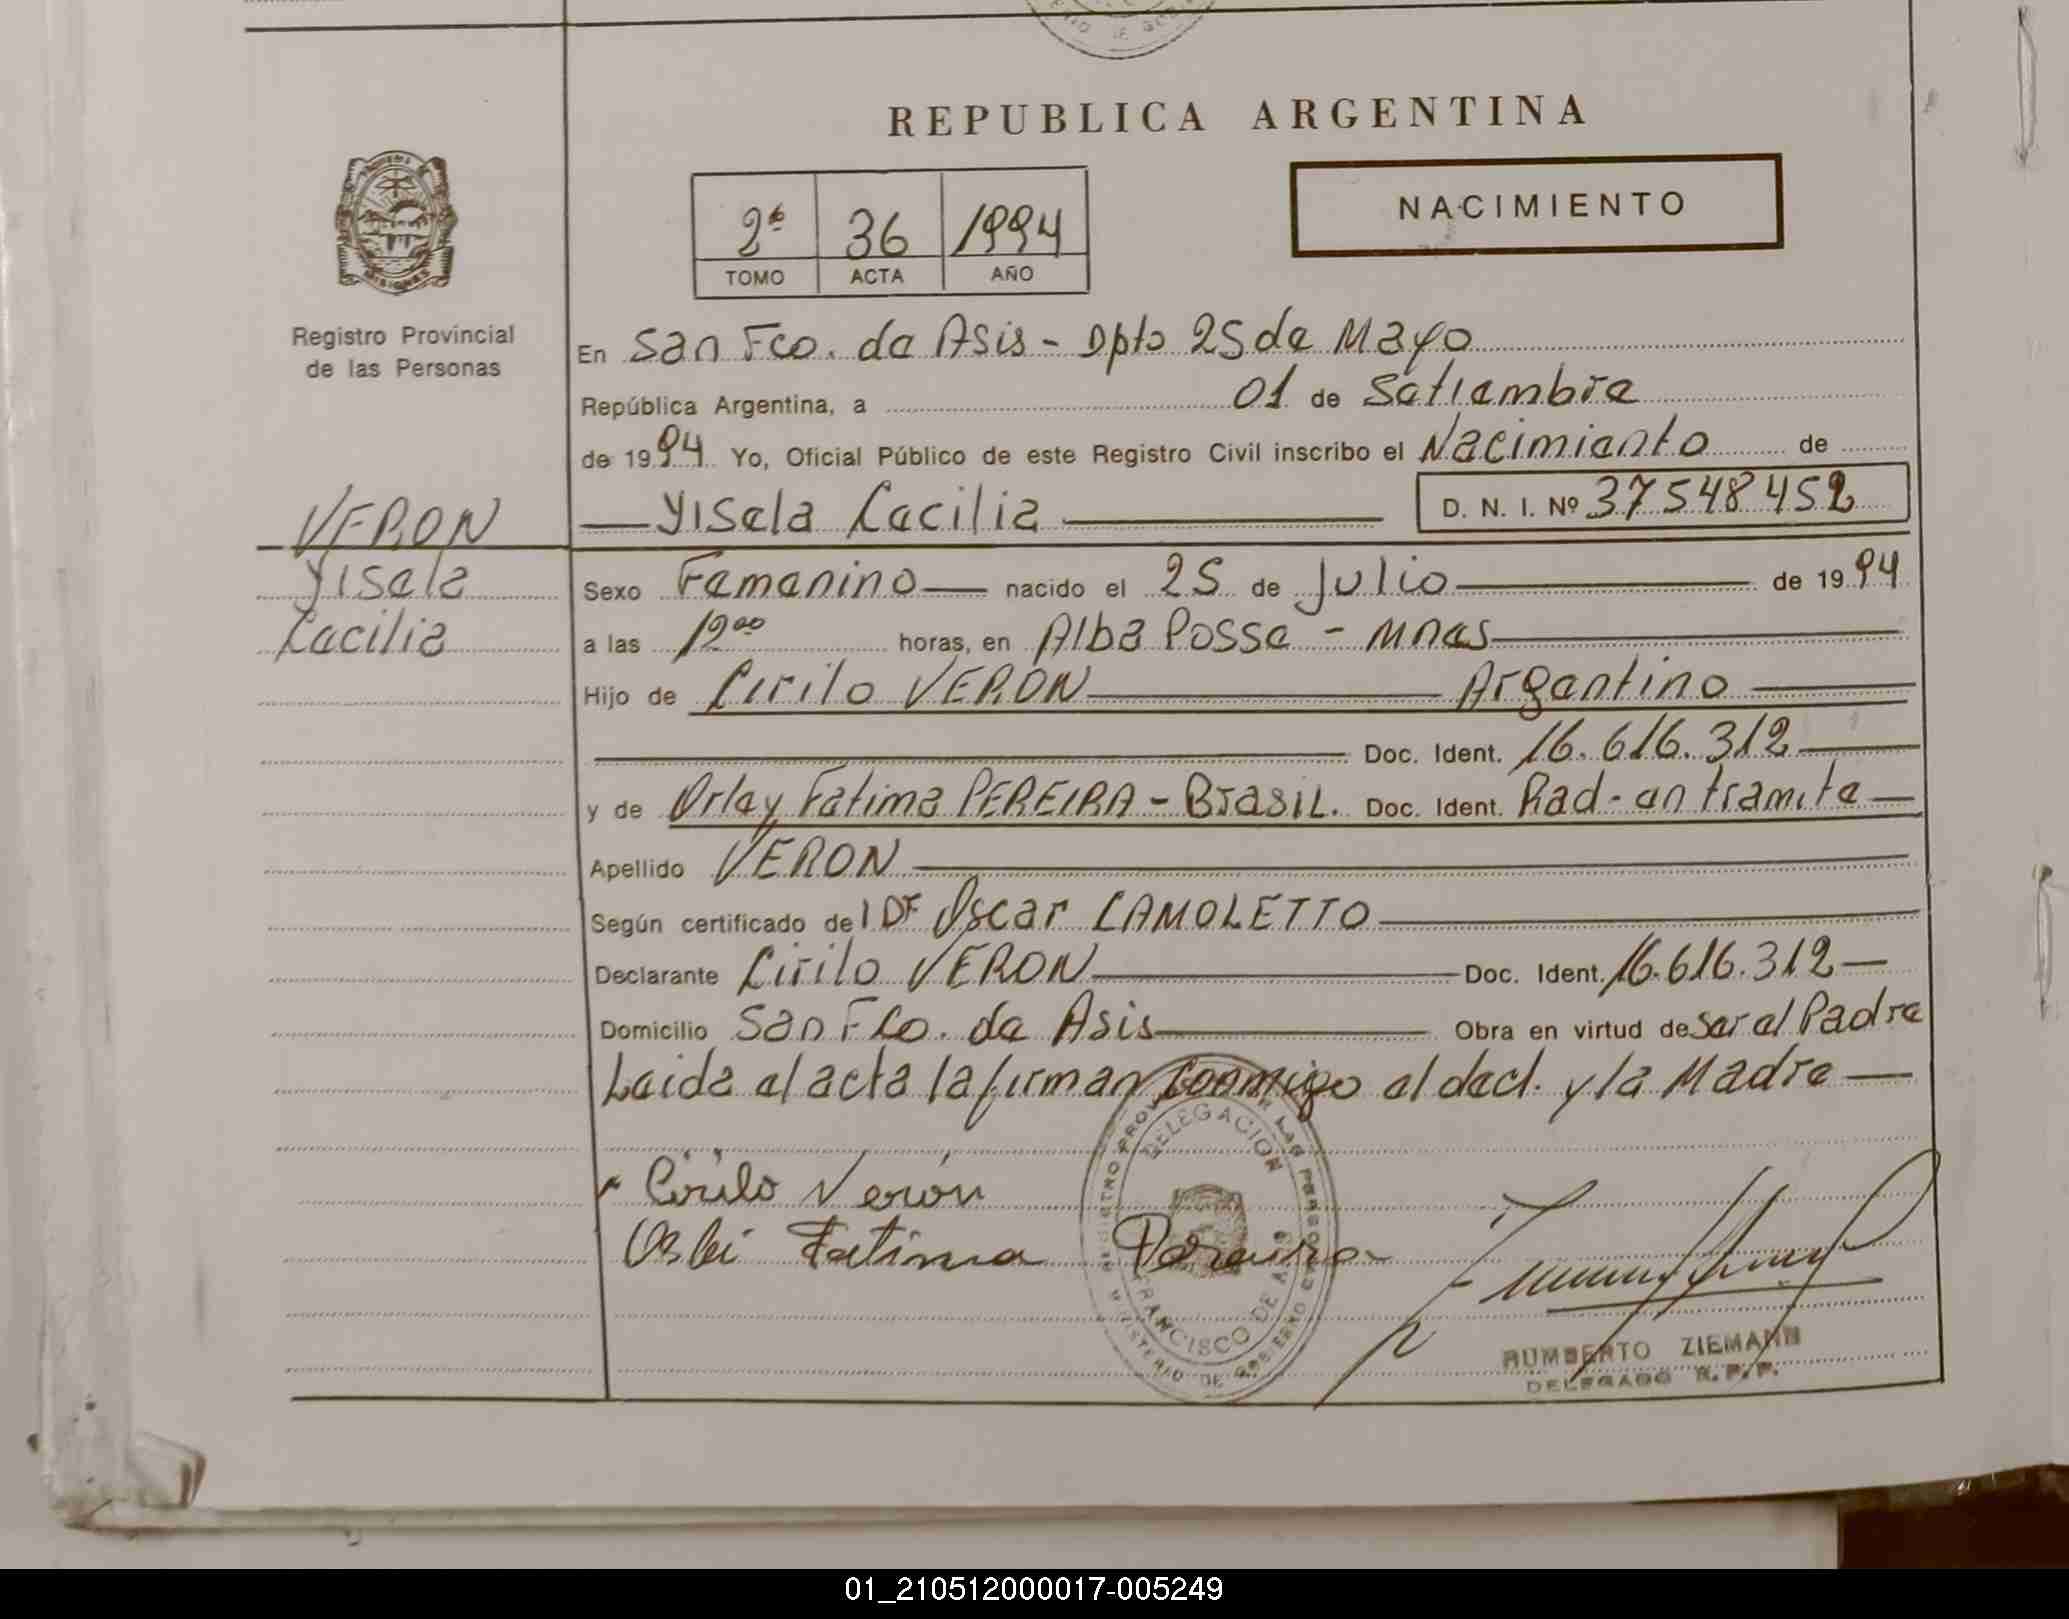 REPUBLICA ARGENTINA
NACIMIENTO
2º 36 1994
TOMO ACTA AÑO
Registro Provincial
de las Personas
En San Fco. de Asis - Dpto 25 de Mayo
República Argentina, a 01 de Setiembre
de 1994 Yo, Oficial Público de este Registro Civil inscribo el Nacimiento de
Yisela Cecilia D. N. I. Nº 37548452
VERON
Yisela
Cecilia
Sexo Femenino nacido el 25 de Julio de 1994
a las 12⁰⁰ horas, en Alba Posse - Mnes
Hijo de Cirilo VERON Argentino
Doc. Ident. 16.616.312
y de Orley Fatima PEREIRA - Brasil. Doc. Ident. Rad - en tramite
Apellido VERON
Según certificado del Dr Oscar CAMOLETTO
Declarante Cirilo VERON Doc. Ident. 16.616.312
Domicilio San Fco. de Asis Obra en virtud de ser el Padre
Leida el acta la firman conmigo el decl. y la Madre
Cirilo Verón
Fatima Pereira
REGISTRO PROVINCIAL DE LAS PERSONAS
DELEGACION
FRANCISCO DE ASIS
MINISTERIO DE GOBIERNO
HUMBERTO ZIEMANN
DELEGADO R.P.P.
01_210512000017-005249